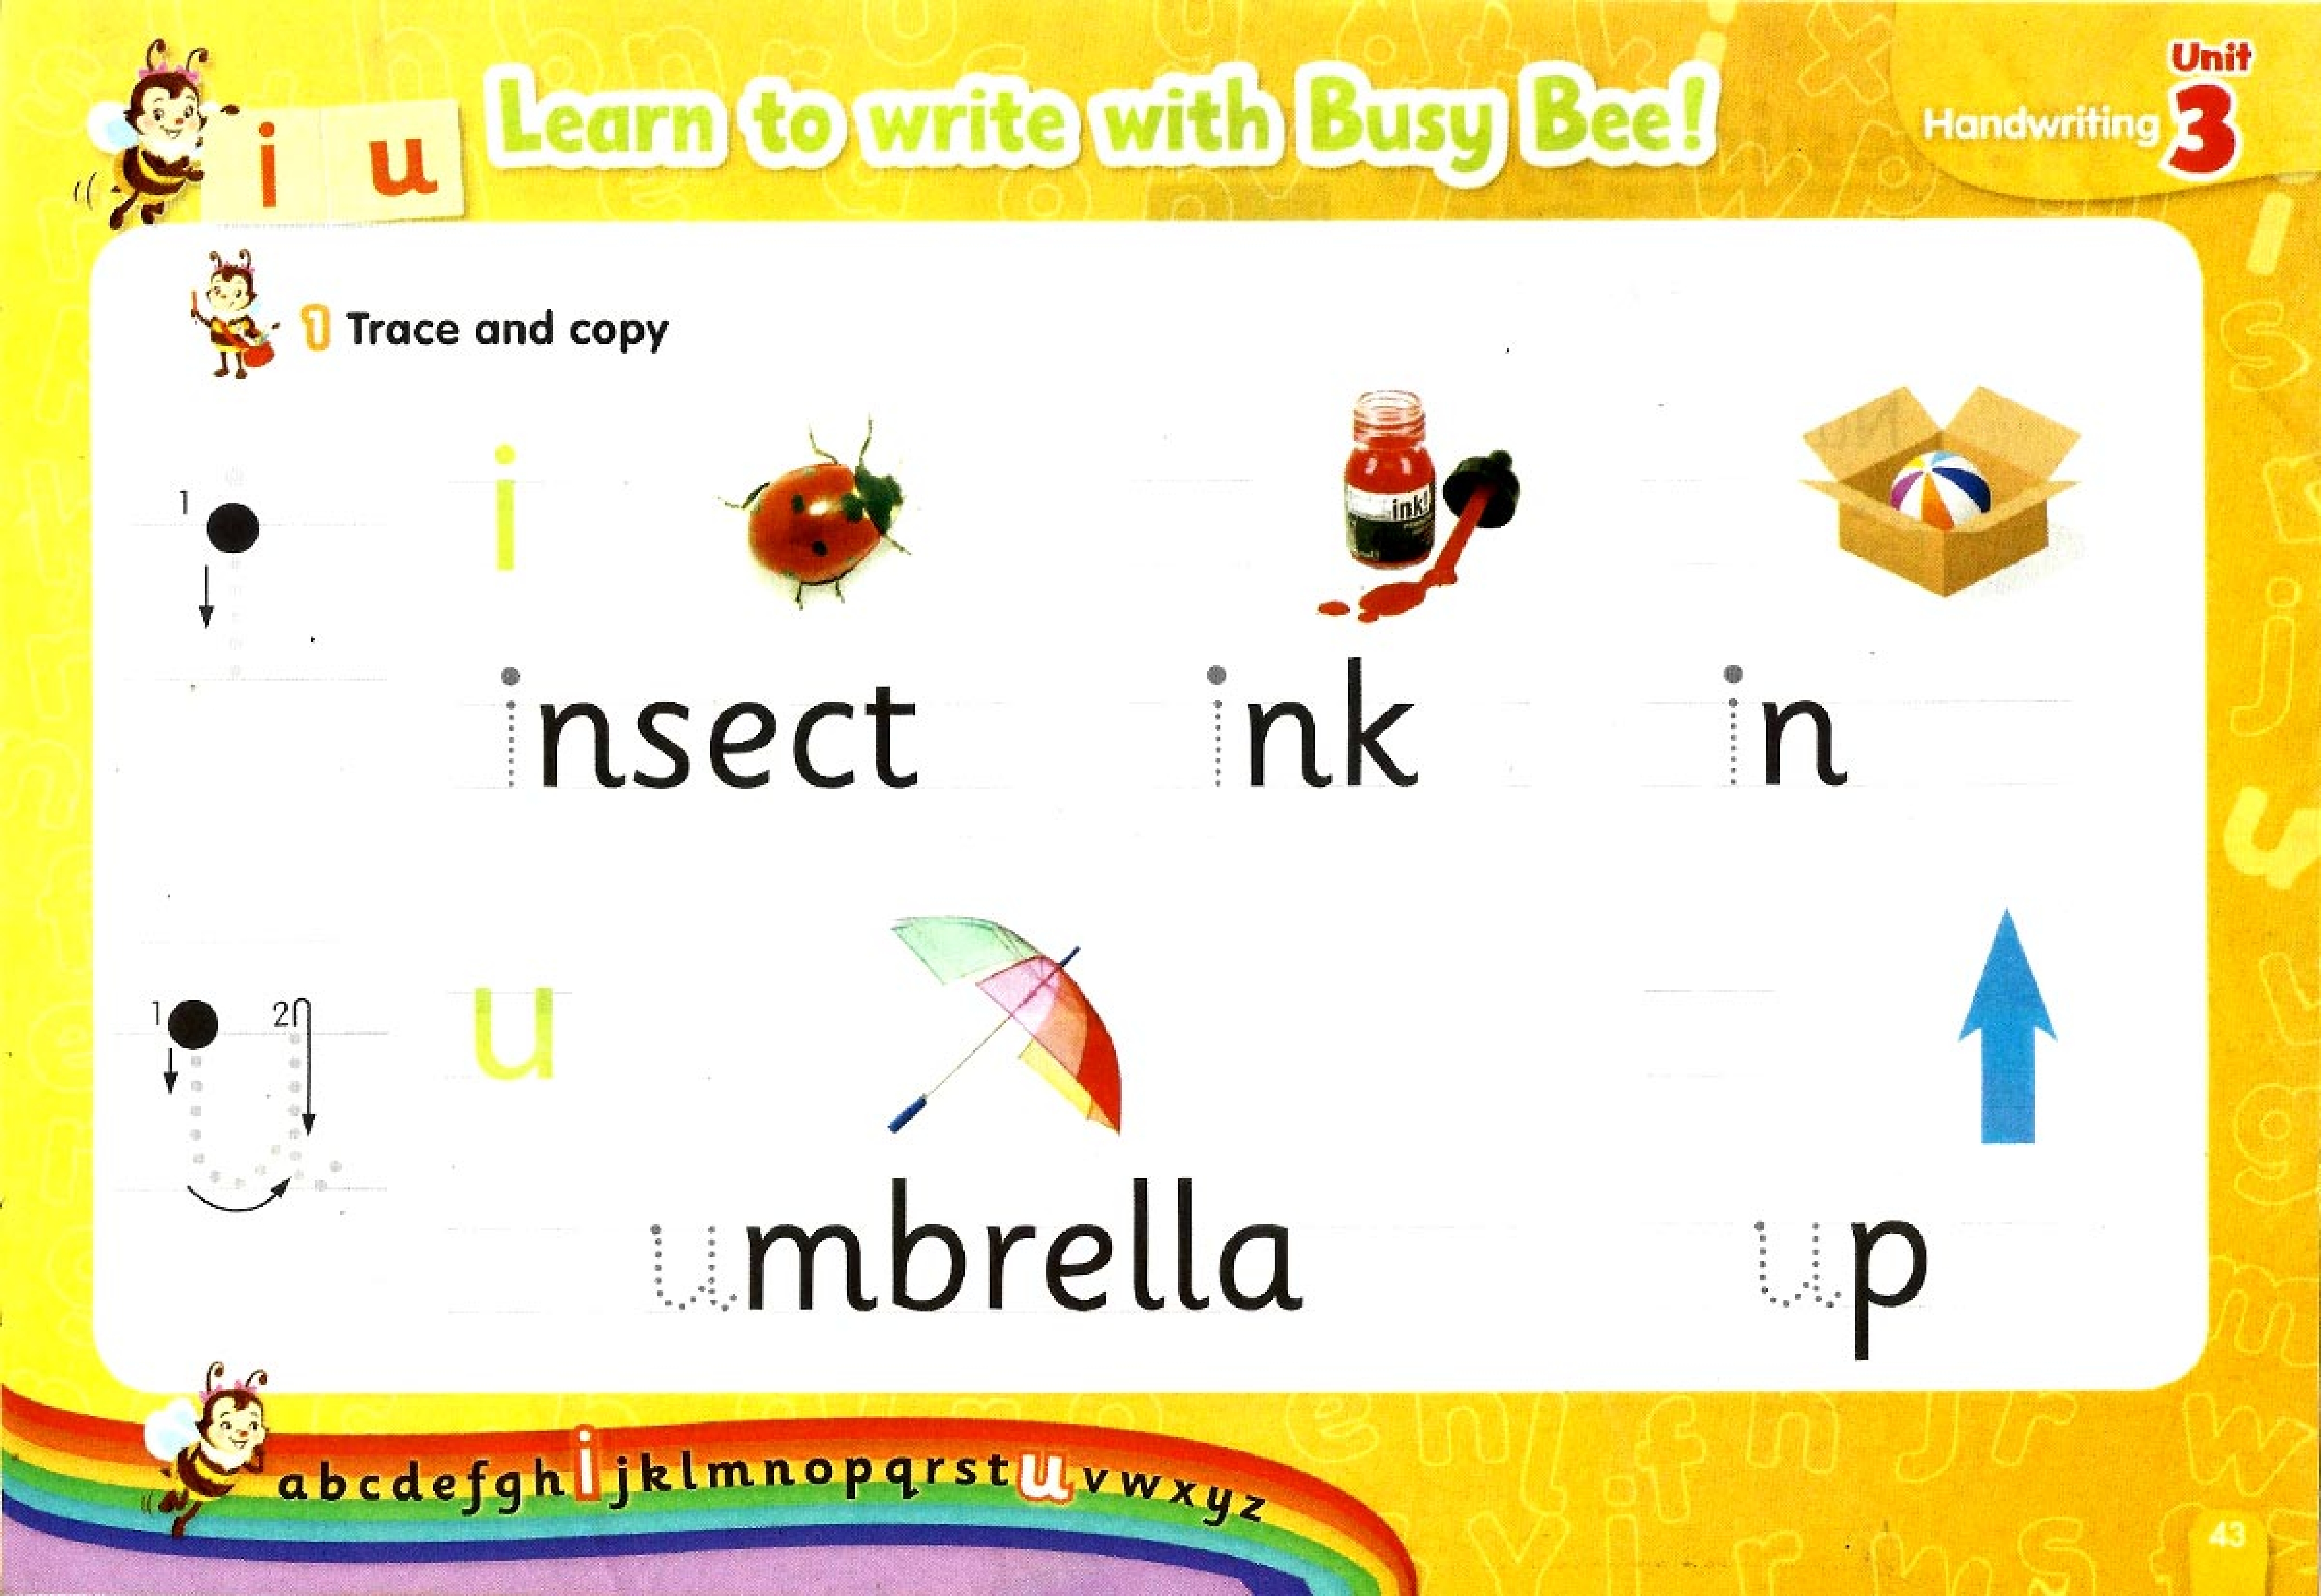 i u
Learn to write with Busy Bee!
Unit
Handwriting 3
1 Trace and copy
1
i
ink
insect
ink
in
1 2
u
umbrella
up
abcdefghijklmnopqrstuvwxyz
43